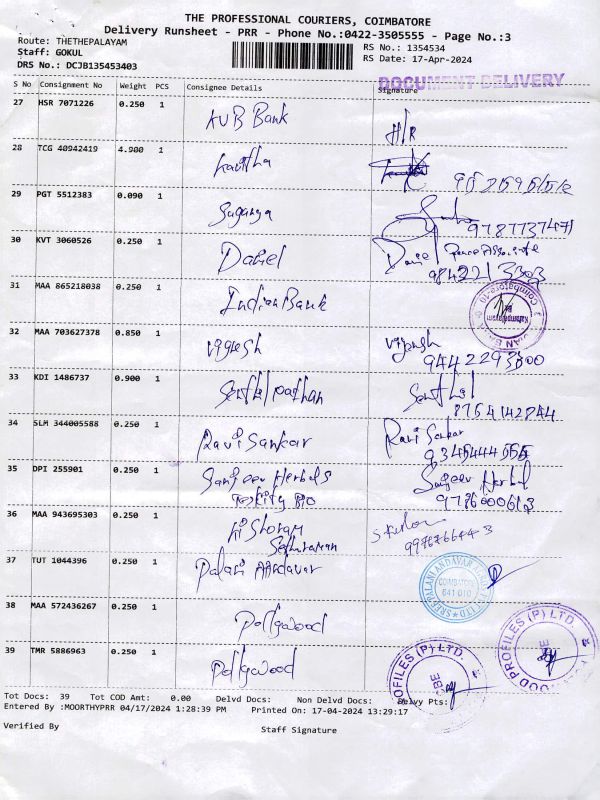 THE PROFESSIONAL COURIERS, COIMBATORE
Delivery Runsheet - PRR - Phone No.:0422-3505555 - Page No.:3
Route: THETHEPALAYAM
RS No.: 1354534
Staff: GOKUL
RS Date: 17-Apr-2024
DRS No.: DCJB135453403
DOCUMENT DELIVERY
S No Consignment No Weight PCS Consignee Details Signature
27 HSR 7071226 0.250 1 KVB Bank
H/R
28 TCG 40942419 4.900 1 Kavitha
29 PGT 5512383 0.090 1 Suganya
9787737471
30 KVT 3060526 0.250 1 Daniel Daniel
9842213303
31 MAA 865218038 0.250 1 Indian Bank
32 MAA 703627378 0.850 1 Vignesh Vignesh
9442293000
33 KDI 1486737 0.900 1 Senthil pathan Senthil
8754142844
34 SLM 344005588 0.250 1 Ravi Sankar Ravi Sankar
9345444555
35 DPI 255901 0.250 1 Sanjeev Herbals Sanjeev Herbal
Bio
36 MAA 943695303 0.250 1 Kishoram
Sethuraman
37 TUT 1044396 0.250 1 Palani Aandavar
COIMBATORE
641 010
38 MAA 572436267 0.250 1 Pollywood
PROFILES (P) LTD.
39 TMR 5886963 0.250 1 Pollywood
PROFILES (P) LTD.
Tot Docs: 39 Tot COD Amt: 0.00 Delvd Docs: Non Delvd Docs: Delvy Pts:
Entered By :MOORTHYPRR 04/17/2024 1:28:39 PM Printed On: 17-04-2024 13:29:17
Verified By
Staff Signature